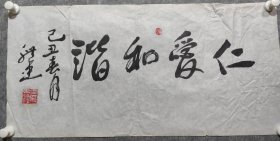 仁爱和谐
己丑春月